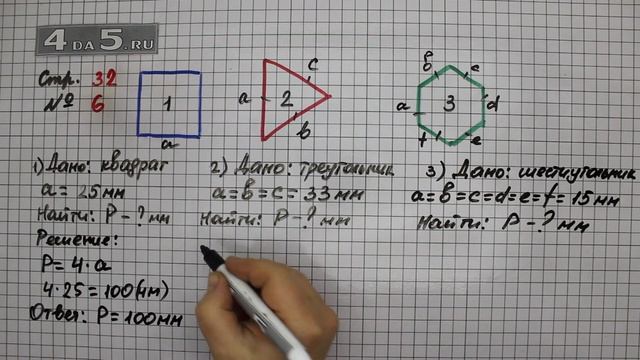 4 DA 5.RU
Стр. 32
№ 6
1
a
a
c
2
b
a
b
c
3
d
f
e
1) Дано: квадрат
a = 25 мм
Найти: P - ? мм
Решение:
P = 4 · a
4 · 25 = 100 (мм)
Ответ: P = 100 мм
2) Дано: треугольник
a = b = c = 33 мм
Найти: P - ? мм
3) Дано: шестиугольник
a = b = c = d = e = f = 15 мм
Найти: P - ? мм